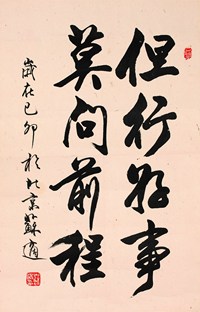 但行好事
莫问前程
岁在己卯于北京苏适